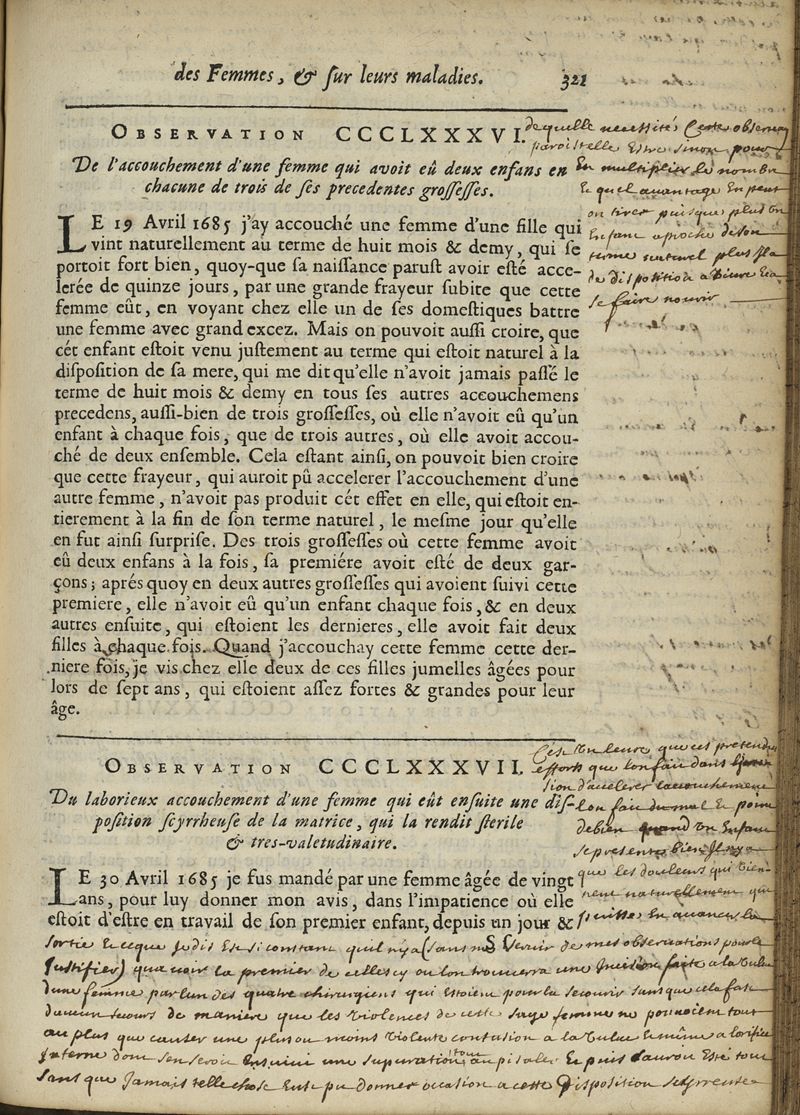 des Femmes, & ſur leurs maladies. 321
OBSERVATION CCCLXXXVI.
De l'accouchement d'une femme qui avoit eû deux enfans en
chacune de trois de ſes precedentes groſſeſſes.
LE 19 Avril 1685 j'ay accouché une femme d'une fille qui
vint naturellement au terme de huit mois & demy, qui ſe
portoit fort bien, quoy-que ſa naiſſance paruſt avoir eſté acce-
lerée de quinze jours, par une grande frayeur ſubite que cette
femme eût, en voyant chez elle un de ſes domeſtiques battre
une femme avec grand excez. Mais on pouvoit auſſi croire, que
cét enfant eſtoit venu juſtement au terme qui eſtoit naturel à la
diſpoſition de ſa mere, qui me dit qu'elle n'avoit jamais paſſé le
terme de huit mois & demy en tous ſes autres accouchemens
precedens, auſſi-bien de trois groſſeſſes, où elle n'avoit eû qu'un
enfant à chaque fois, que de trois autres, où elle avoit accou-
ché de deux enſemble. Cela eſtant ainſi, on pouvoit bien croire
que cette frayeur, qui auroit pû accelerer l'accouchement d'une
autre femme, n'avoit pas produit cét effet en elle, qui eſtoit en-
tierement à la fin de ſon terme naturel, le meſme jour qu'elle
en fut ainſi ſurpriſe. Des trois groſſeſſes où cette femme avoit
eû deux enfans à la fois, ſa premiére avoit eſté de deux gar-
çons; aprés quoy en deux autres groſſeſſes qui avoient ſuivi cette
premiere, elle n'avoit eû qu'un enfant chaque fois, & en deux
autres enſuite, qui eſtoient les dernieres, elle avoit fait deux
filles à chaque fois. Quand j'accouchay cette femme cette der-
niere fois, je vis chez elle deux de ces filles jumelles âgées pour
lors de ſept ans, qui eſtoient aſſez fortes & grandes pour leur
âge.
de quelle necessité Cette observa
paroistelle Estre sinon pour
En multiplier le nombre
Et quel avantage En peut
on tirer puisque plus un
Enfant aproche de son
terme naturel plus Il a
de disposition a vivre Et a
se faire nourir
OBSERVATION CCCLXXXVII.
Du laborieux accouchement d'une femme qui eût enſuite une diſ-
poſition ſcyrrheuſe de la matrice, qui la rendit ſterile
& tres-valetudinaire.
LE 30 Avril 1685 je fus mandé par une femme âgée de vingt
ans, pour luy donner mon avis, dans l'impatience où elle
eſtoit d'eſtre en travail de ſon premier enfant, depuis un jour &
que ces pretendus
efforts que lon fait dans
d'accelerer l'accouchement
lon fait du mal Et point
de bien quand un Enfant
se presente bien Il ny a
que les douleurs qui vien
nent naturellement qui
sortie Et ce que Je dis Est si constant quil ny a (sans me Servir de mes observations pour le
Justifier) qua voir la premier de celles cy ou lon trouvera une Incision faite a la vulve
dune femme par lun des quatre chirurgiens qui Estoient pour la secourir sans que cela fut
daucun secours de maniere que les violences de cette sage femme ne pouvoient tout
au plus que causer une plus ou moins violente contusion a la vulve Et même a lorifice
Interne dont sen seroit Ensuivi une supuration Et puis Sauroit Esté tout
sans que Jamais telle chose Eust pu donner occasion a cette Disposition